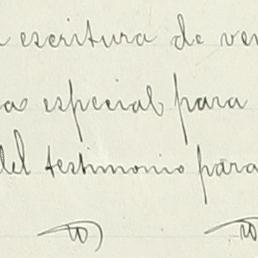 escritura de ven
especial para
del testimonio para